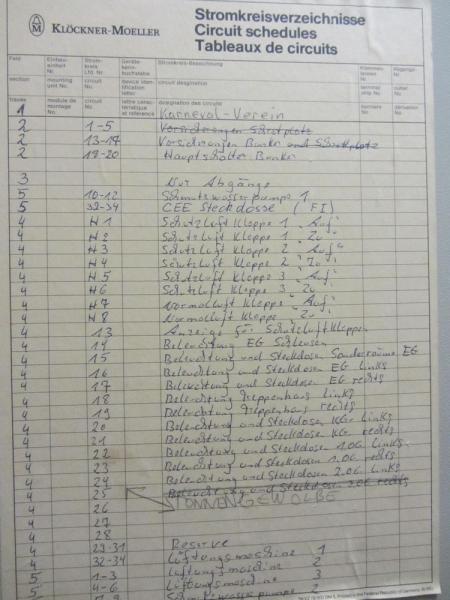 KLÖCKNER-MOELLER
Stromkreisverzeichnisse
Circuit schedules
Tableaux de circuits
Feld Einbau-einheit Nr. Strom-kreis Lfd. Nr. Geräte-kenn-buchstabe Stromkreis-Bezeichnung Klemmen-leisten Nr. Abgangs-Nr.
section mounting unit No. circuit No. device identification letter circuit designation terminal strip No. outlet No.
travée module de montage No. circuit No. lettre caractéristique et référence désignation des circuits
1 Karneval-Verein
2 1-5 Vorsicherungen Schutzplatz
2 13-17 Vorsicherungen Bunker und Schutzplatz
2 18-20 Hauptschalter Bunker
3 Nur Abgänge
5 10-12 Schmutzwasserpumpe 1
5 32-34 CEE Steckdose (FI)
4 H1 Schutzluft Klappe 1 "Auf"
4 H2 Schutzluft Klappe 1 "Zu"
4 H3 Schutzluft Klappe 2 "Auf"
4 H4 Schutzluft Klappe 2 "Zu"
4 H5 Schutzluft Klappe 3 "Auf"
4 H6 Schutzluft Klappe 3 "Zu"
4 H7 Normalluft Klappe "Auf"
4 H8 Normalluft Klappe "Zu"
4 13 Anzeige für Schutzluft Klappen
4 14 Beleuchtung EG Schleusen
4 15 Beleuchtung und Steckdosen Sonderräume EG
4 16 Beleuchtung und Steckdosen EG links
4 17 Beleuchtung und Steckdosen EG rechts
4 18 Beleuchtung Treppenhaus links
4 19 Beleuchtung Treppenhaus rechts
4 20 Beleuchtung und Steckdosen KG links
4 21 Beleuchtung und Steckdosen KG rechts
4 22 Beleuchtung und Steckdosen 1.OG links
4 23 Beleuchtung und Steckdosen 1.OG rechts
4 24 Beleuchtung und Steckdosen 2.OG links
4 25 Beleuchtung und Steckdosen 2.OG rechts
4 26 TONNENGEWÖLBE
4 27
4 28
4 29-31 Reserve
4 32-34 Lüftungsmaschine 1
5 1-3 Lüftungsmaschine 2
5 4-6 Lüftungsmaschine 3